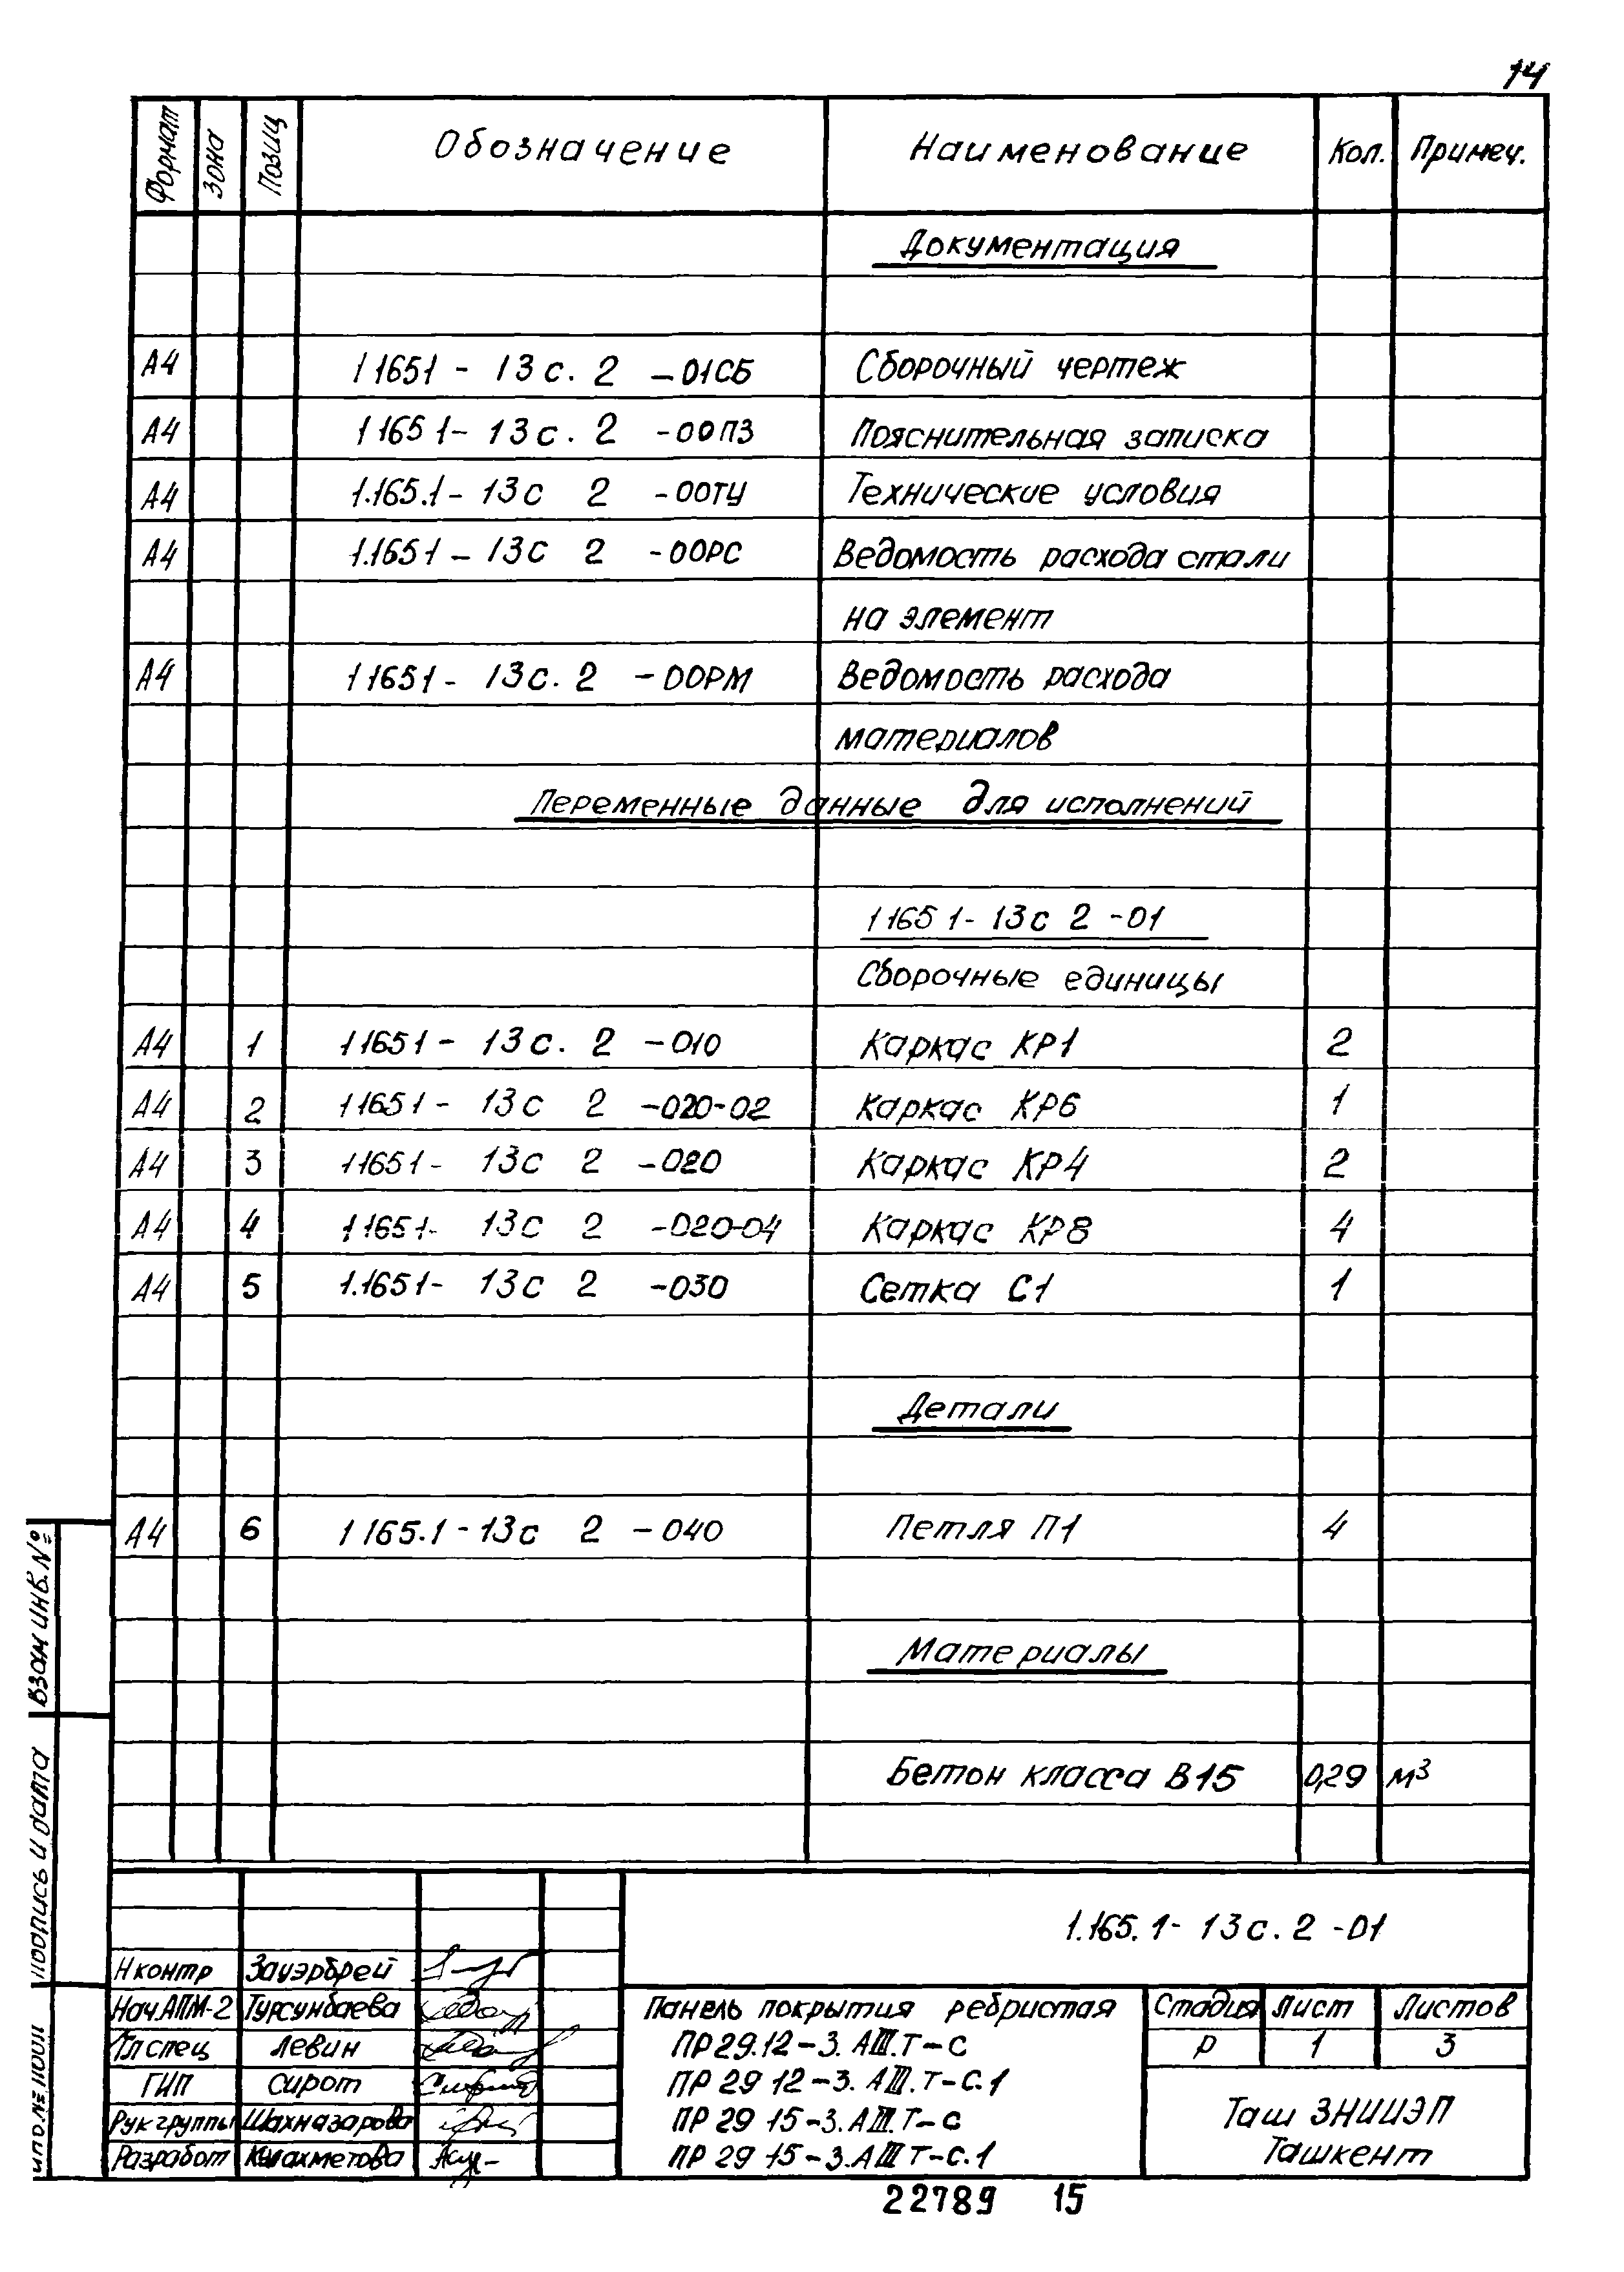 14
Формат Зона Позиц Обозначение Наименование Кол. Примеч.
Документация
А4 1 165 1 - 13с. 2 - 01СБ Сборочный чертеж
А4 1 165 1 - 13с. 2 - 00ПЗ Пояснительная записка
А4 1.165.1 - 13с 2 - 00ТУ Технические условия
А4 1.165 1 - 13с 2 - 00РС Ведомость расхода стали
на элемент
А4 1 165 1 - 13с. 2 - 00РМ Ведомость расхода
материалов
Переменные данные для исполнений
1 165 1 - 13с 2 - 01
Сборочные единицы
А4 1 1 165 1 - 13с. 2 - 010 Каркас КР1 2
А4 2 1 165 1 - 13с 2 - 020-02 Каркас КР6 1
А4 3 1 165 1 - 13с 2 - 020 Каркас КР4 2
А4 4 1 165 1 - 13с 2 - 020-04 Каркас КР8 4
А4 5 1.165 1 - 13с 2 - 030 Сетка С1 1
Детали
А4 6 1 165.1 - 13с 2 - 040 Петля П1 4
Материалы
Бетон класса В15 0,29 м³
Взам инв. №
Подпись и дата
1.165.1 - 13с. 2 - 01
Н контр Зауэрбрей
Нач. АПМ-2 Турсунбаева
Гл спец Левин
ГИП Сирот
Рук группы Шахназарова
Разработ Кулахметова
Панель покрытия ребристая
ПР 29.12-3. АIII.Т-С
ПР 29 12-3. АIII.Т-С.1
ПР 29 15-3. АIII.Т-С
ПР 29 15-3. АIII Т-С.1
Стадия Лист Листов
Р 1 3
Таш ЗНИИЭП
Ташкент
22789 15